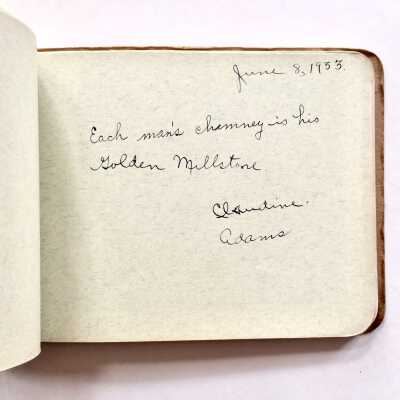 June 8, 1933.
Each man's chemney is his
Golden Millstone
Claudine.
Adams